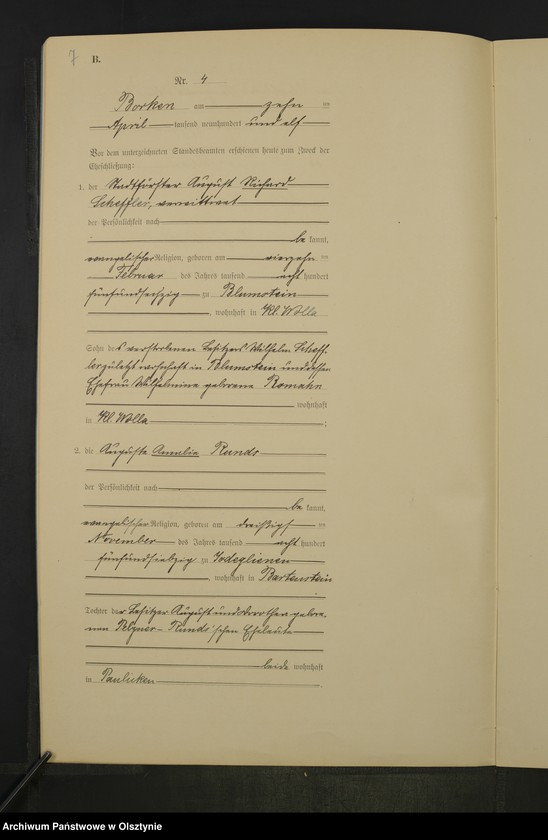 7
B.
Nr. 4
Borken am zehn ten
April tausend neunhundert und elf
Vor dem unterzeichneten Standesbeamten erschienen heute zum Zweck der
Eheschließung:
1. der Stadtförster August Richard
Scheffler, verwittwet
der Persönlichkeit nach
be kannt,
evangelischer Religion, geboren am vierzehn ten
Februar des Jahres tausend acht hundert
fünfundsechzig zu Blumstein
, wohnhaft in Kl. Wolla
Sohn des verstorbenen Besitzers Wilhelm Scheff-
ler zuletzt wohnhaft in Blumstein und dessen
Ehefrau Wilhelmine geborene Romahn
wohnhaft
in Kl. Wolla ;
2. die Auguste Amalie Runds
der Persönlichkeit nach
be kannt,
evangelischer Religion, geboren am dreißigs ten
November des Jahres tausend acht hundert
fünfundsiebzig zu Jodeglienen
, wohnhaft in Bartenstein
Tochter der Besitzer August und Dorothea gebore-
nen Pelzner-Runds'schen Eheleute
beide wohnhaft
in Paulicken .
Archiwum Państwowe w Olsztynie